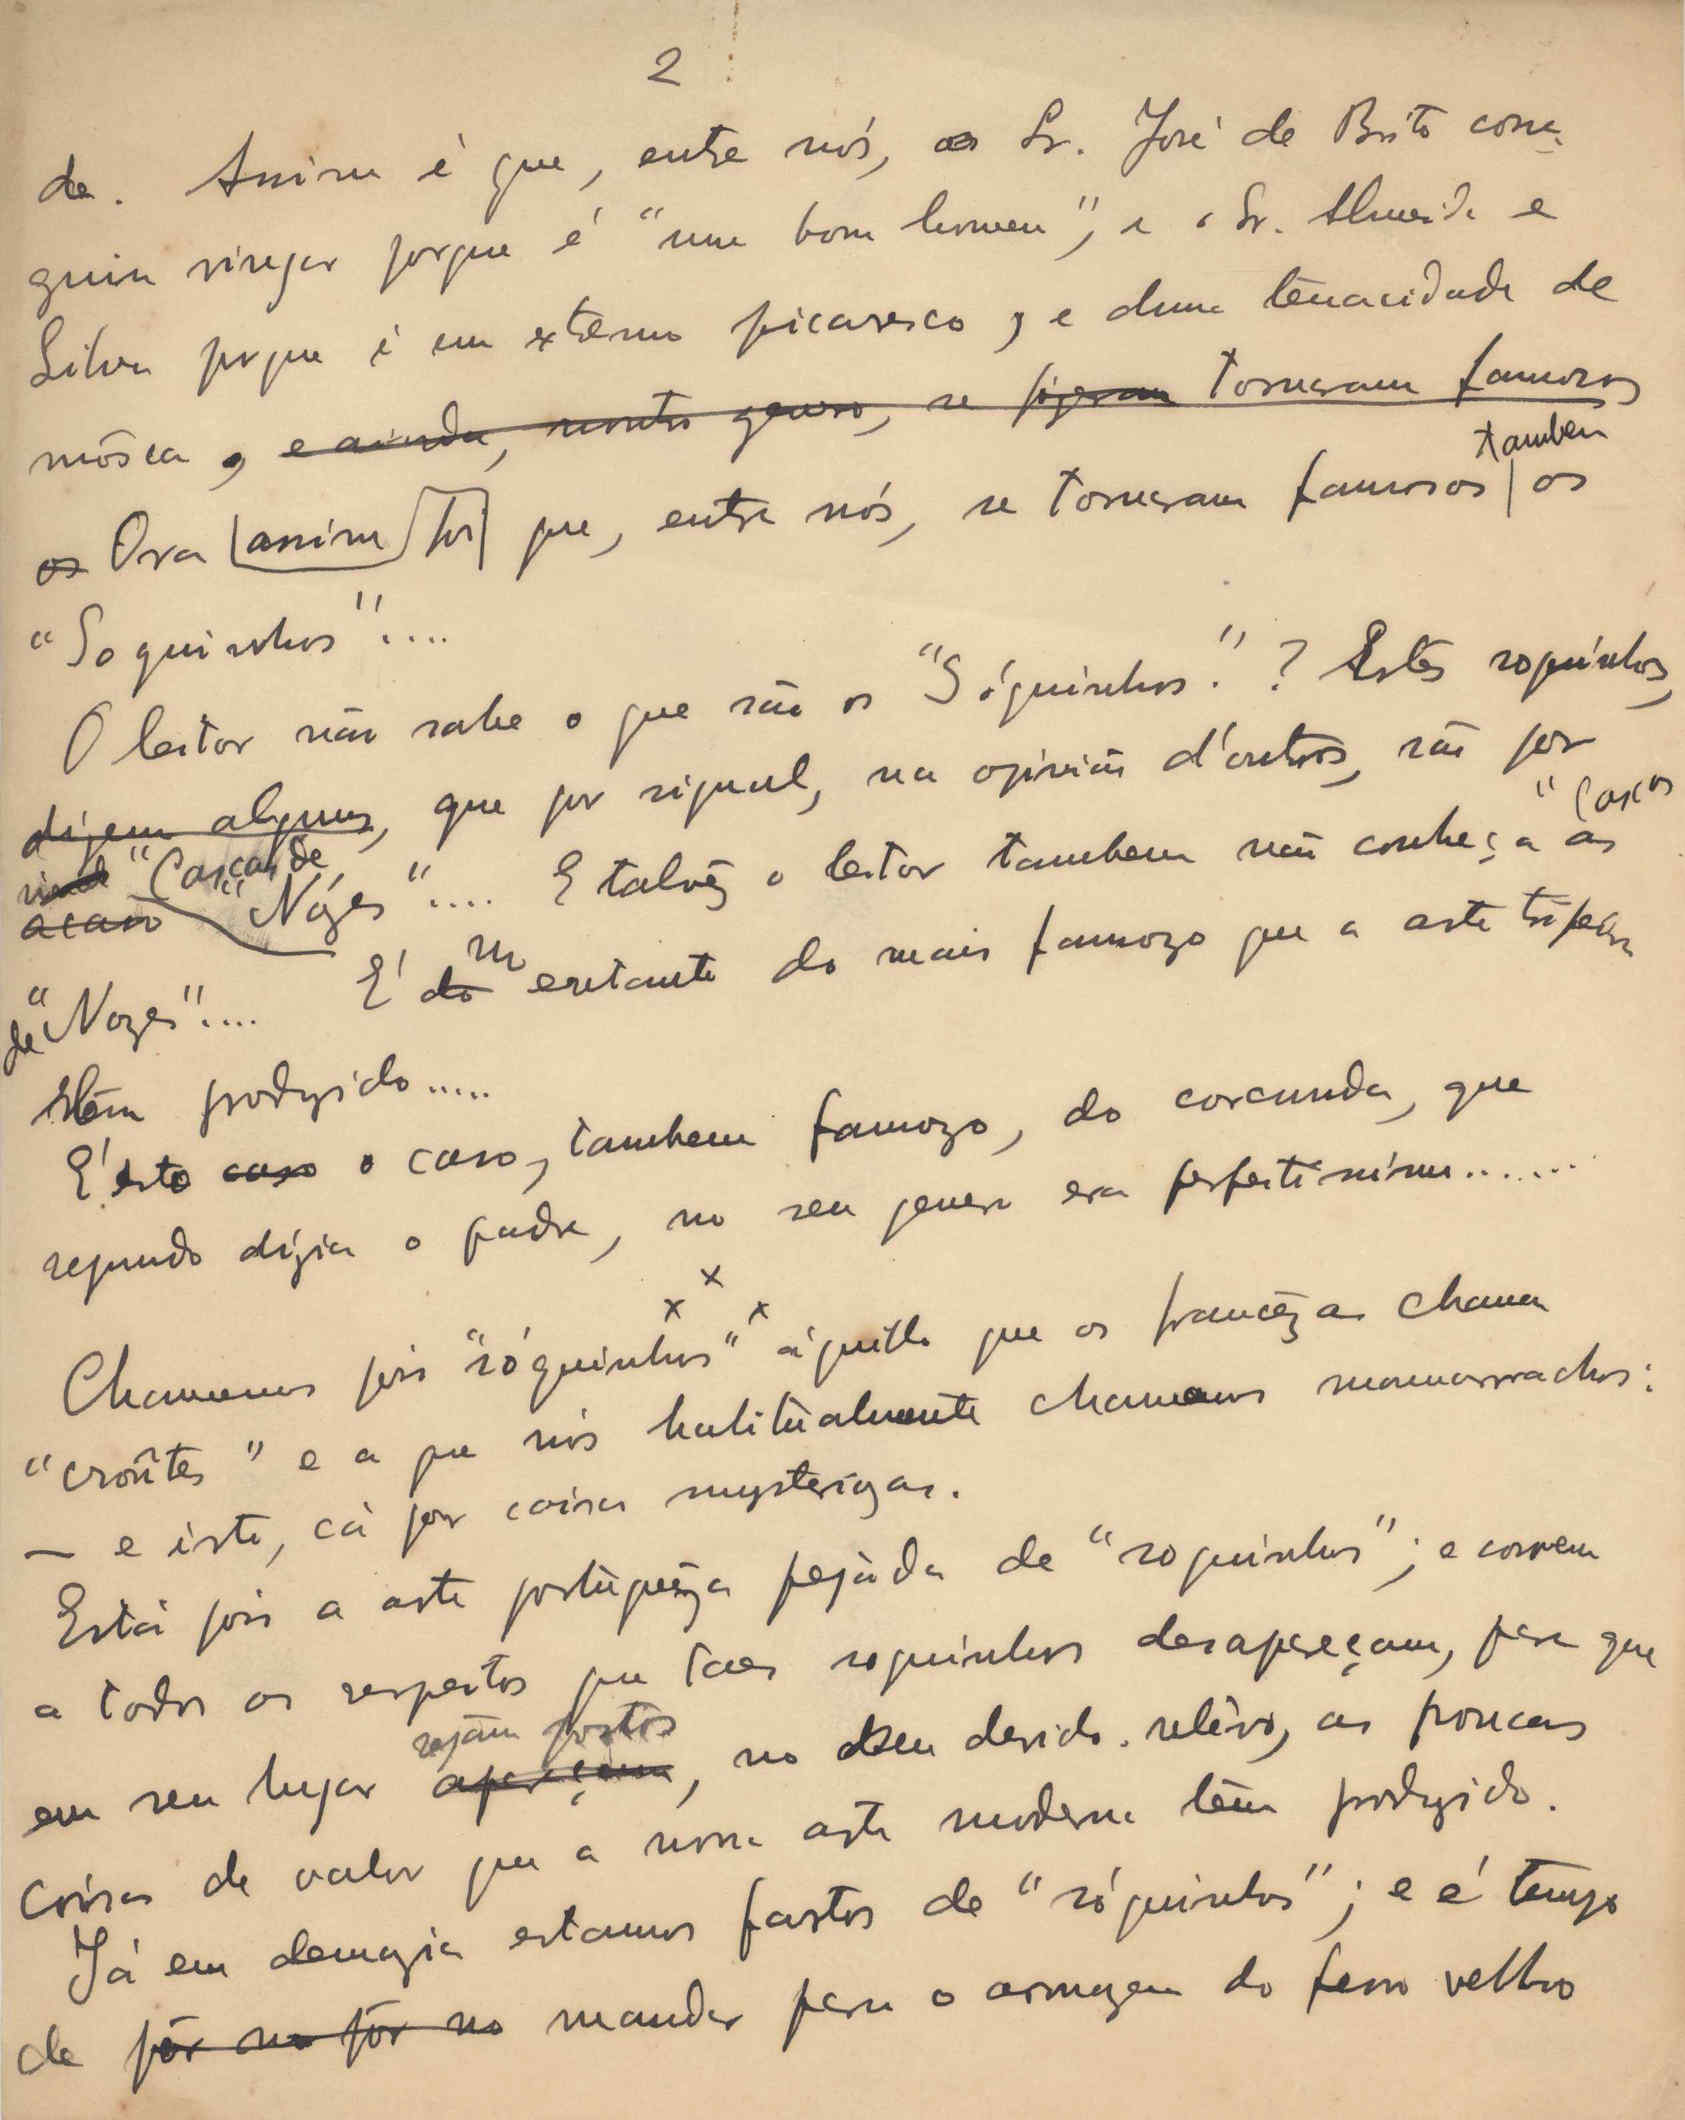 2
de. Assim é que, entre nós, o Sr. José de Brito conse-
guiu vingar porque é "um bom homem", e o Sr. Almeida e
Silva porque é em extremo picaresco, e duma tenacidade de
môsca, e ainda, noutro genero, se fizeram tornaram famozos
os Ora assim foi que, entre nós, se tornaram famosos tambem os
"Soquinhos"....
O leitor não sabe o que são os "Sóquinhos."? Estes soquinhos,
dizem alguns, que por signal, na opinião d'outros, são por
acaso "Cascas de "Nózes".... E talvêz o leitor tambem não conheça as "Cascas
de "Nozes".... E' do no entanto do mais famozo que a arte tripeira
têm produzido.....
E' esto caso o caso, tambem famozo, do corcunda, que
segundo dizia o padre, no seu genero era perfeitissimo.......
x x x
Chamemos pois "sóquinhos" áquillo que os francêzes chamam
"croûtes" e a que nós habitualmente chamamos monarrachos:
— e isto, cá por coisas mysteriozas.
Está pois a arte portuguêza pejáda de "soquinhos"; e convem
a todos os respeitos que taes soquinhos desapareçam, para que
em seu lugar apareçam sejam postos, no seu devido relêvo, as poucas
coisas de valor que a nossa arte moderna têm produzido.
Já em demazia estamos fartos de "sóquinhos"; e é tempo
de pôr no pôr no mandar para o armazem do ferro velho